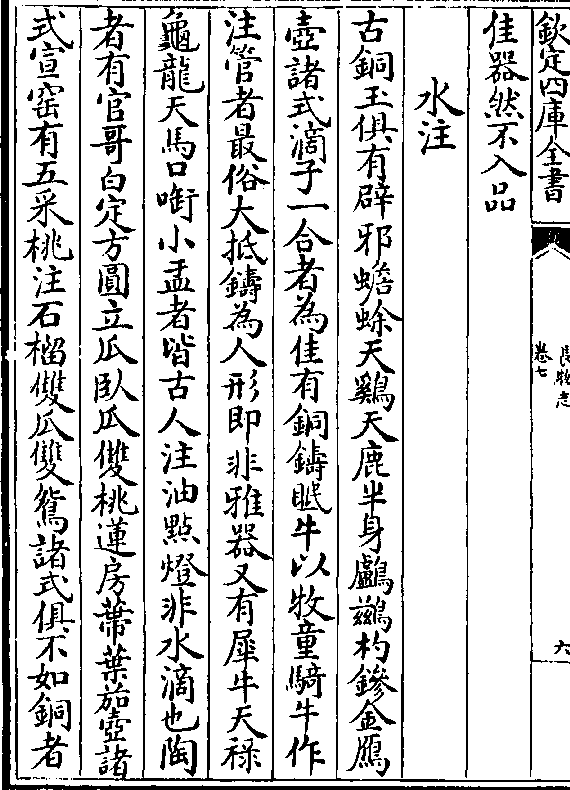 欽定四庫全書
長物志
卷七
六
佳器然不入品
水注
古銅玉俱有辟邪蟾蜍天鷄天鹿半身鸕鶿杓鏒金鴈
壺諸式滴子一合者為佳有銅鑄眠牛以牧童騎牛作
注管者最俗大抵鑄為人形即非雅器又有犀牛天祿
龜龍天馬口啣小盂者皆古人注油點燈非水滴也陶
者有官哥白定方圓立瓜臥瓜雙桃蓮房蔕葉茄壺諸
式宣窑有五采桃注石榴雙瓜雙鴛諸式俱不如銅者